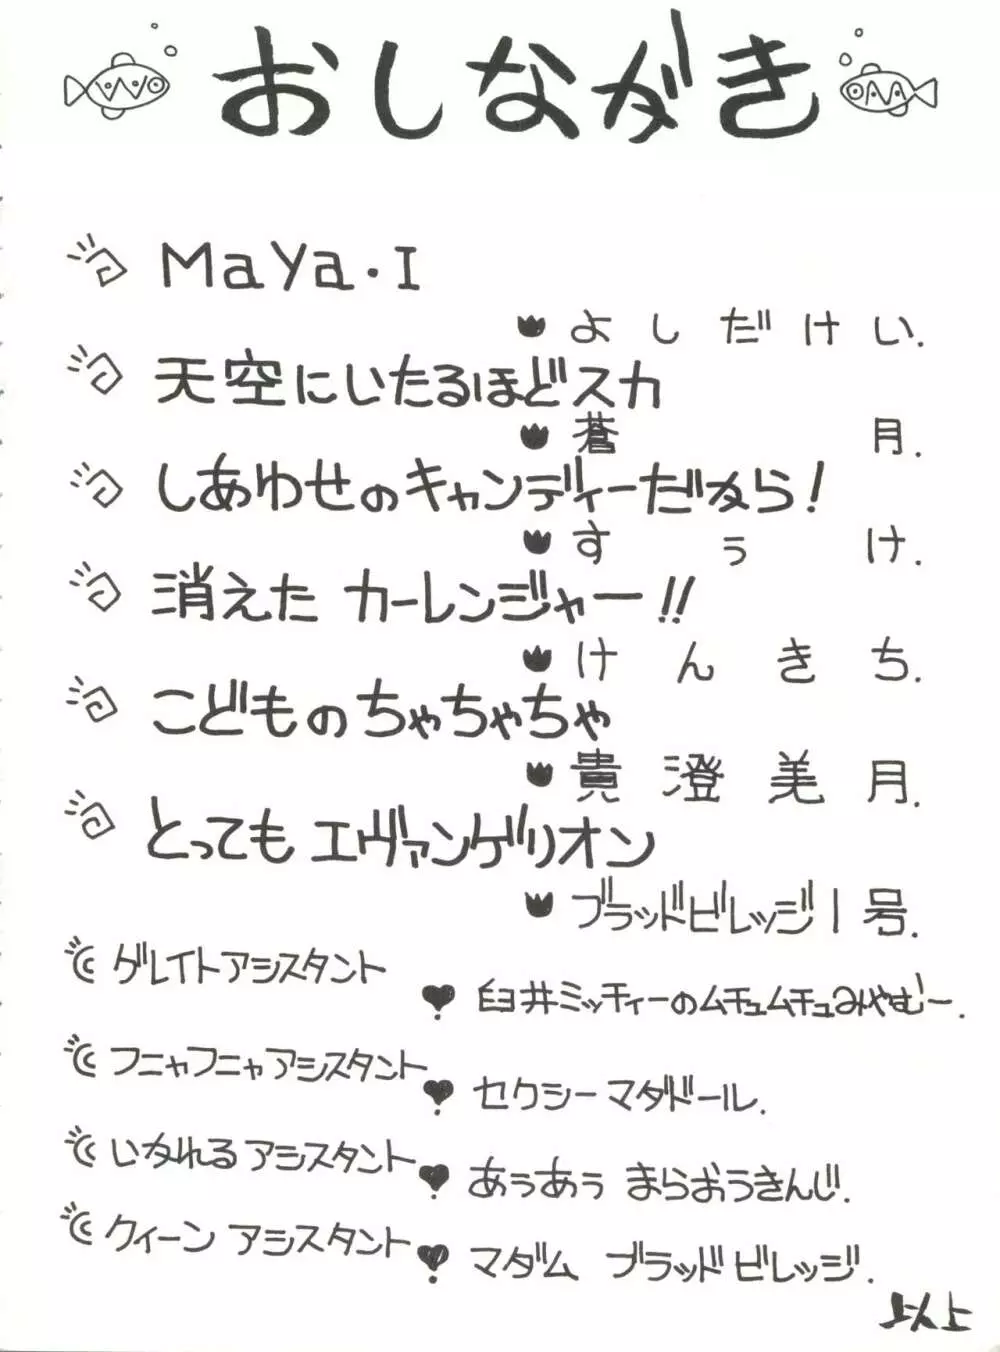 おしながき
MaYa・I
よしだけい.
天空にいたるほどスカ
蒼月.
しあわせのキャンディーだから!
すぅけ.
消えた カーレンジャー!!
けんきち.
こどものちゃちゃちゃ
貴澄美月.
とっても エヴァンゲリオン
ブラッドビレッジ1号.
グレイトアシスタント
臼井ミッチィーのムチュムチュみやむー.
フニャフニャアシスタント
セクシーマタドール.
いかれるアシスタント
あぅあぅ まらおうきんじ.
クィーン アシスタント
マダム ブラッドビレッジ.
以上